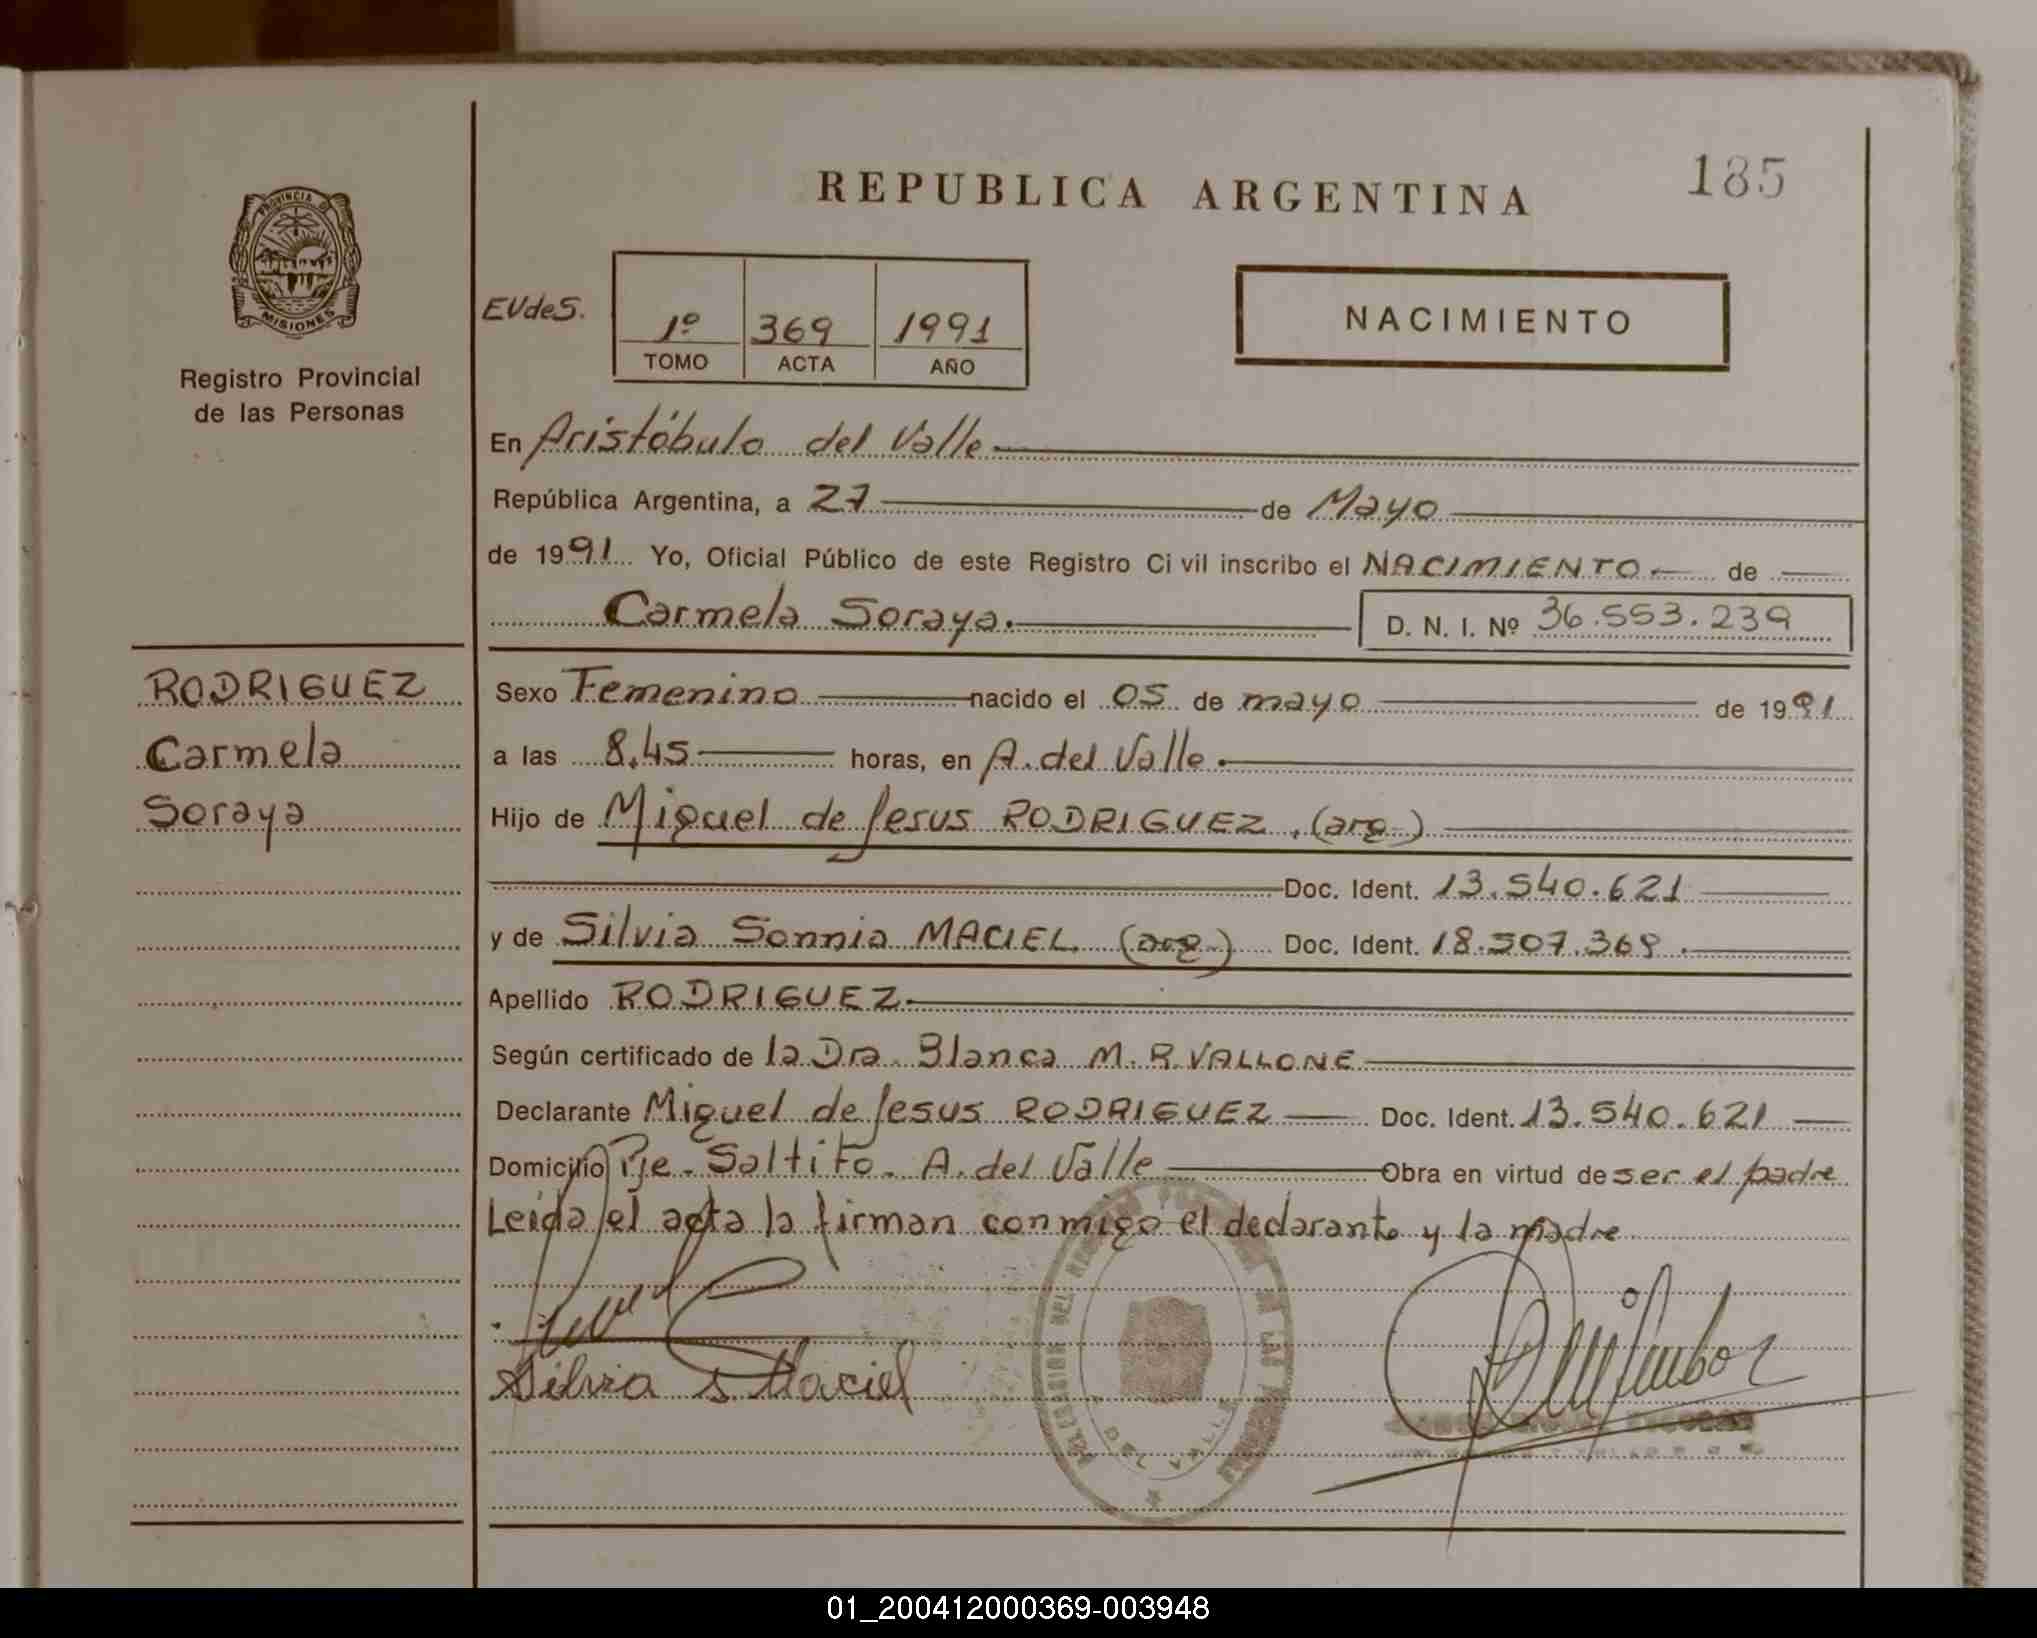 REPUBLICA ARGENTINA
185
PROVINCIA D
MISIONES
Registro Provincial
de las Personas
EVdeS.
1º 369 1991
TOMO ACTA AÑO
NACIMIENTO
En Aristóbulo del Valle
República Argentina, a 27 de Mayo
de 1991 Yo, Oficial Público de este Registro Civil inscribo el NACIMIENTO. de
Carmela Soraya.
D. N. I. Nº 36.553.239
RODRIGUEZ
Carmela
Soraya
Sexo Femenino nacido el 05 de mayo de 1991
a las 8.45 horas, en A. del Valle.
Hijo de Miguel de Jesus RODRIGUEZ. (arg.)
Doc. Ident. 13.540.621
y de Silvia Sonnia MACIEL. (arg.) Doc. Ident. 18.507.369.
Apellido RODRIGUEZ.
Según certificado de la Dra. Blanca M. R. VALLONE
Declarante Miguel de Jesus RODRIGUEZ Doc. Ident. 13.540.621
Domicilio Pje. Saltito. A. del Valle Obra en virtud de ser el padre
Leida el acta la firman conmigo el declarante y la madre
Silvia S Maciel
A DEL VALLE
01_200412000369-003948